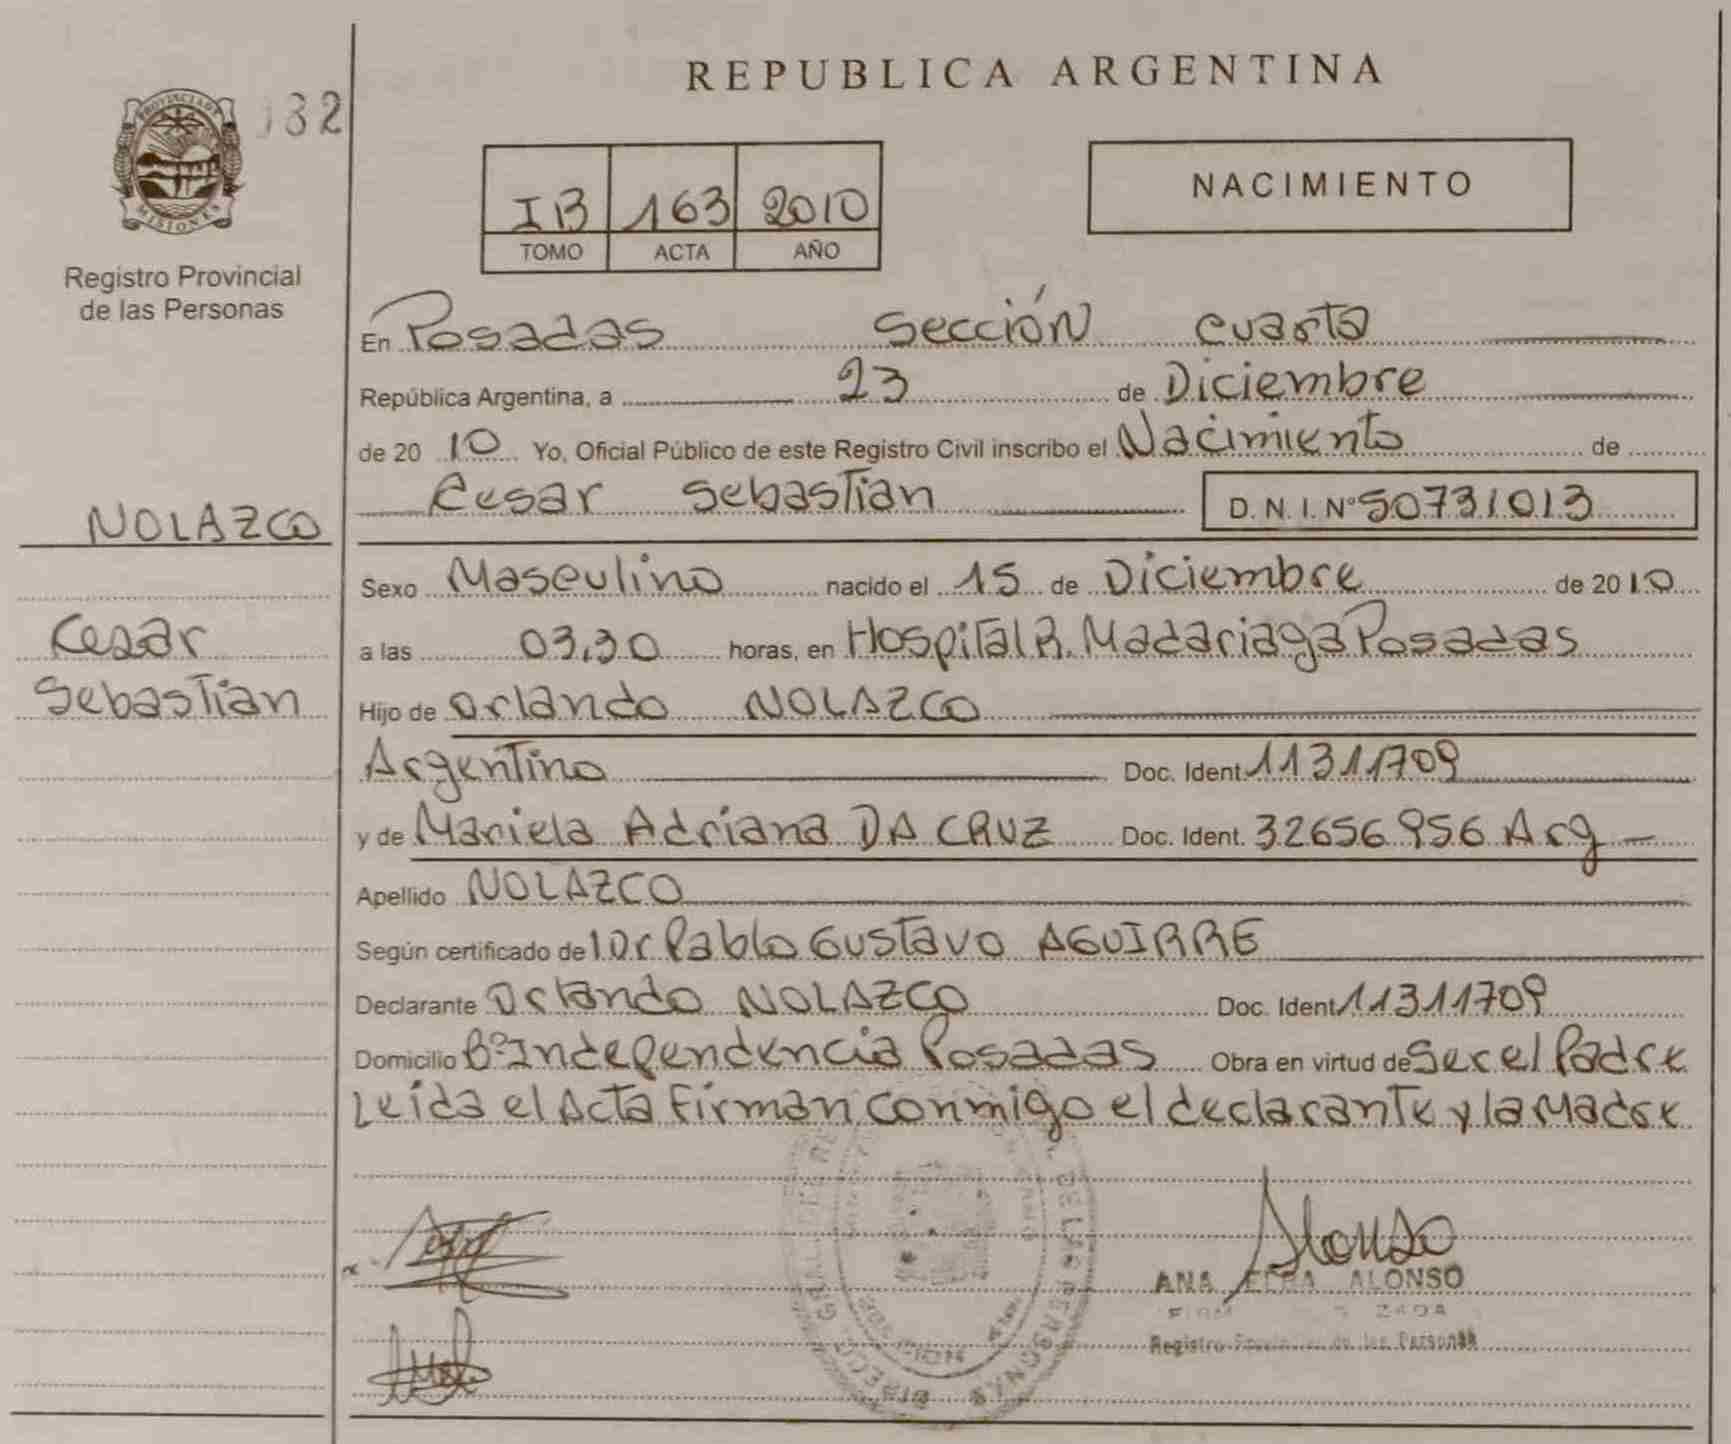 REPUBLICA ARGENTINA
132
PROVINCIA DE MISIONES
Registro Provincial
de las Personas
IB 163 2010
TOMO ACTA AÑO
NACIMIENTO
En Posadas Sección Cuarta
República Argentina, a 23 de Diciembre
de 2010 Yo, Oficial Público de este Registro Civil inscribo el Nacimiento de
Cesar Sebastian D. N. I. Nº 50731013
NOLAZCO
Cesar
Sebastian
Sexo Masculino nacido el 15 de Diciembre de 2010
a las 03,30 horas, en Hospital R. Madariaga Posadas
Hijo de Orlando NOLAZCO
Argentino Doc. Ident 11311709
y de Mariela Adriana DA CRUZ Doc. Ident. 32656956 Arg
Apellido NOLAZCO
Según certificado de l Dr Pablo Gustavo AGUIRRE
Declarante Orlando NOLAZCO Doc. Ident 11311709
Domicilio Bº Independencia Posadas Obra en virtud de Ser el Padre
Leida el Acta Firman conmigo el declarante y la Madre
Alonso
ANA ELBA ALONSO
Registro Provincial de las Personas
DE LAS PERSONAS